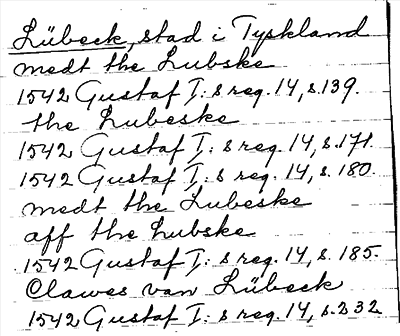 Lübeck, stad i Tyskland
medt the Lubske
1542 Gustaf I: s reg. 14, s. 139.
the Lubeske
1542 Gustaf I: s reg. 14, s. 171.
1542 Gustaf I: s reg. 14, s. 180.
medt the Lubeske
aff the Lubske
1542 Gustaf I: s reg. 14, s. 185.
Clawes van Lübeck
1542 Gustaf I: s reg. 14, s. 232